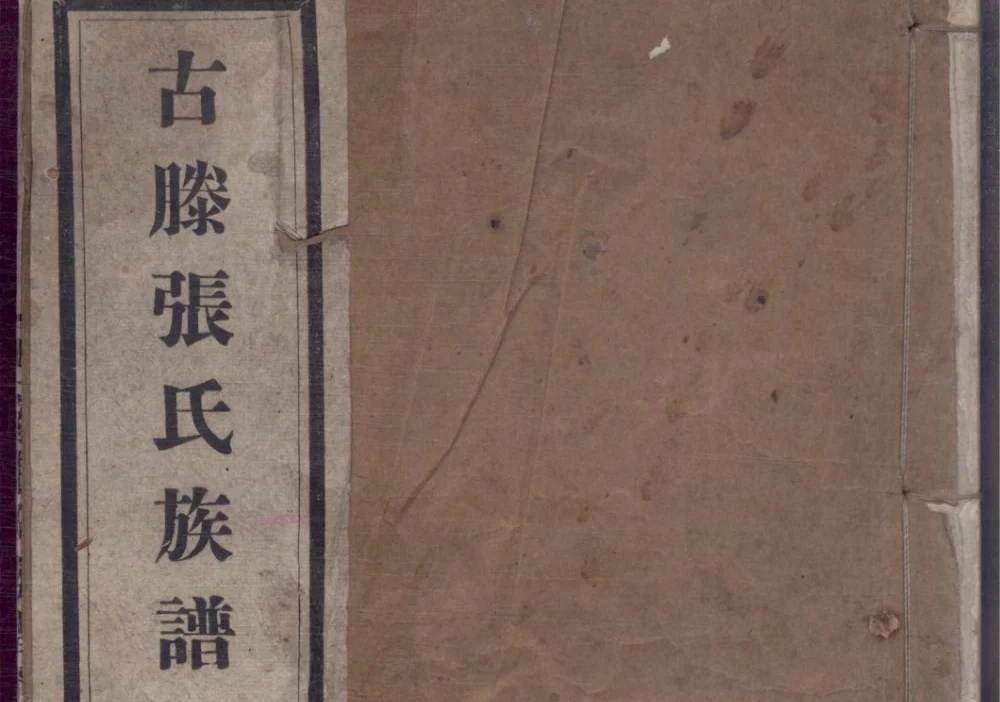 古滕張氏族譜